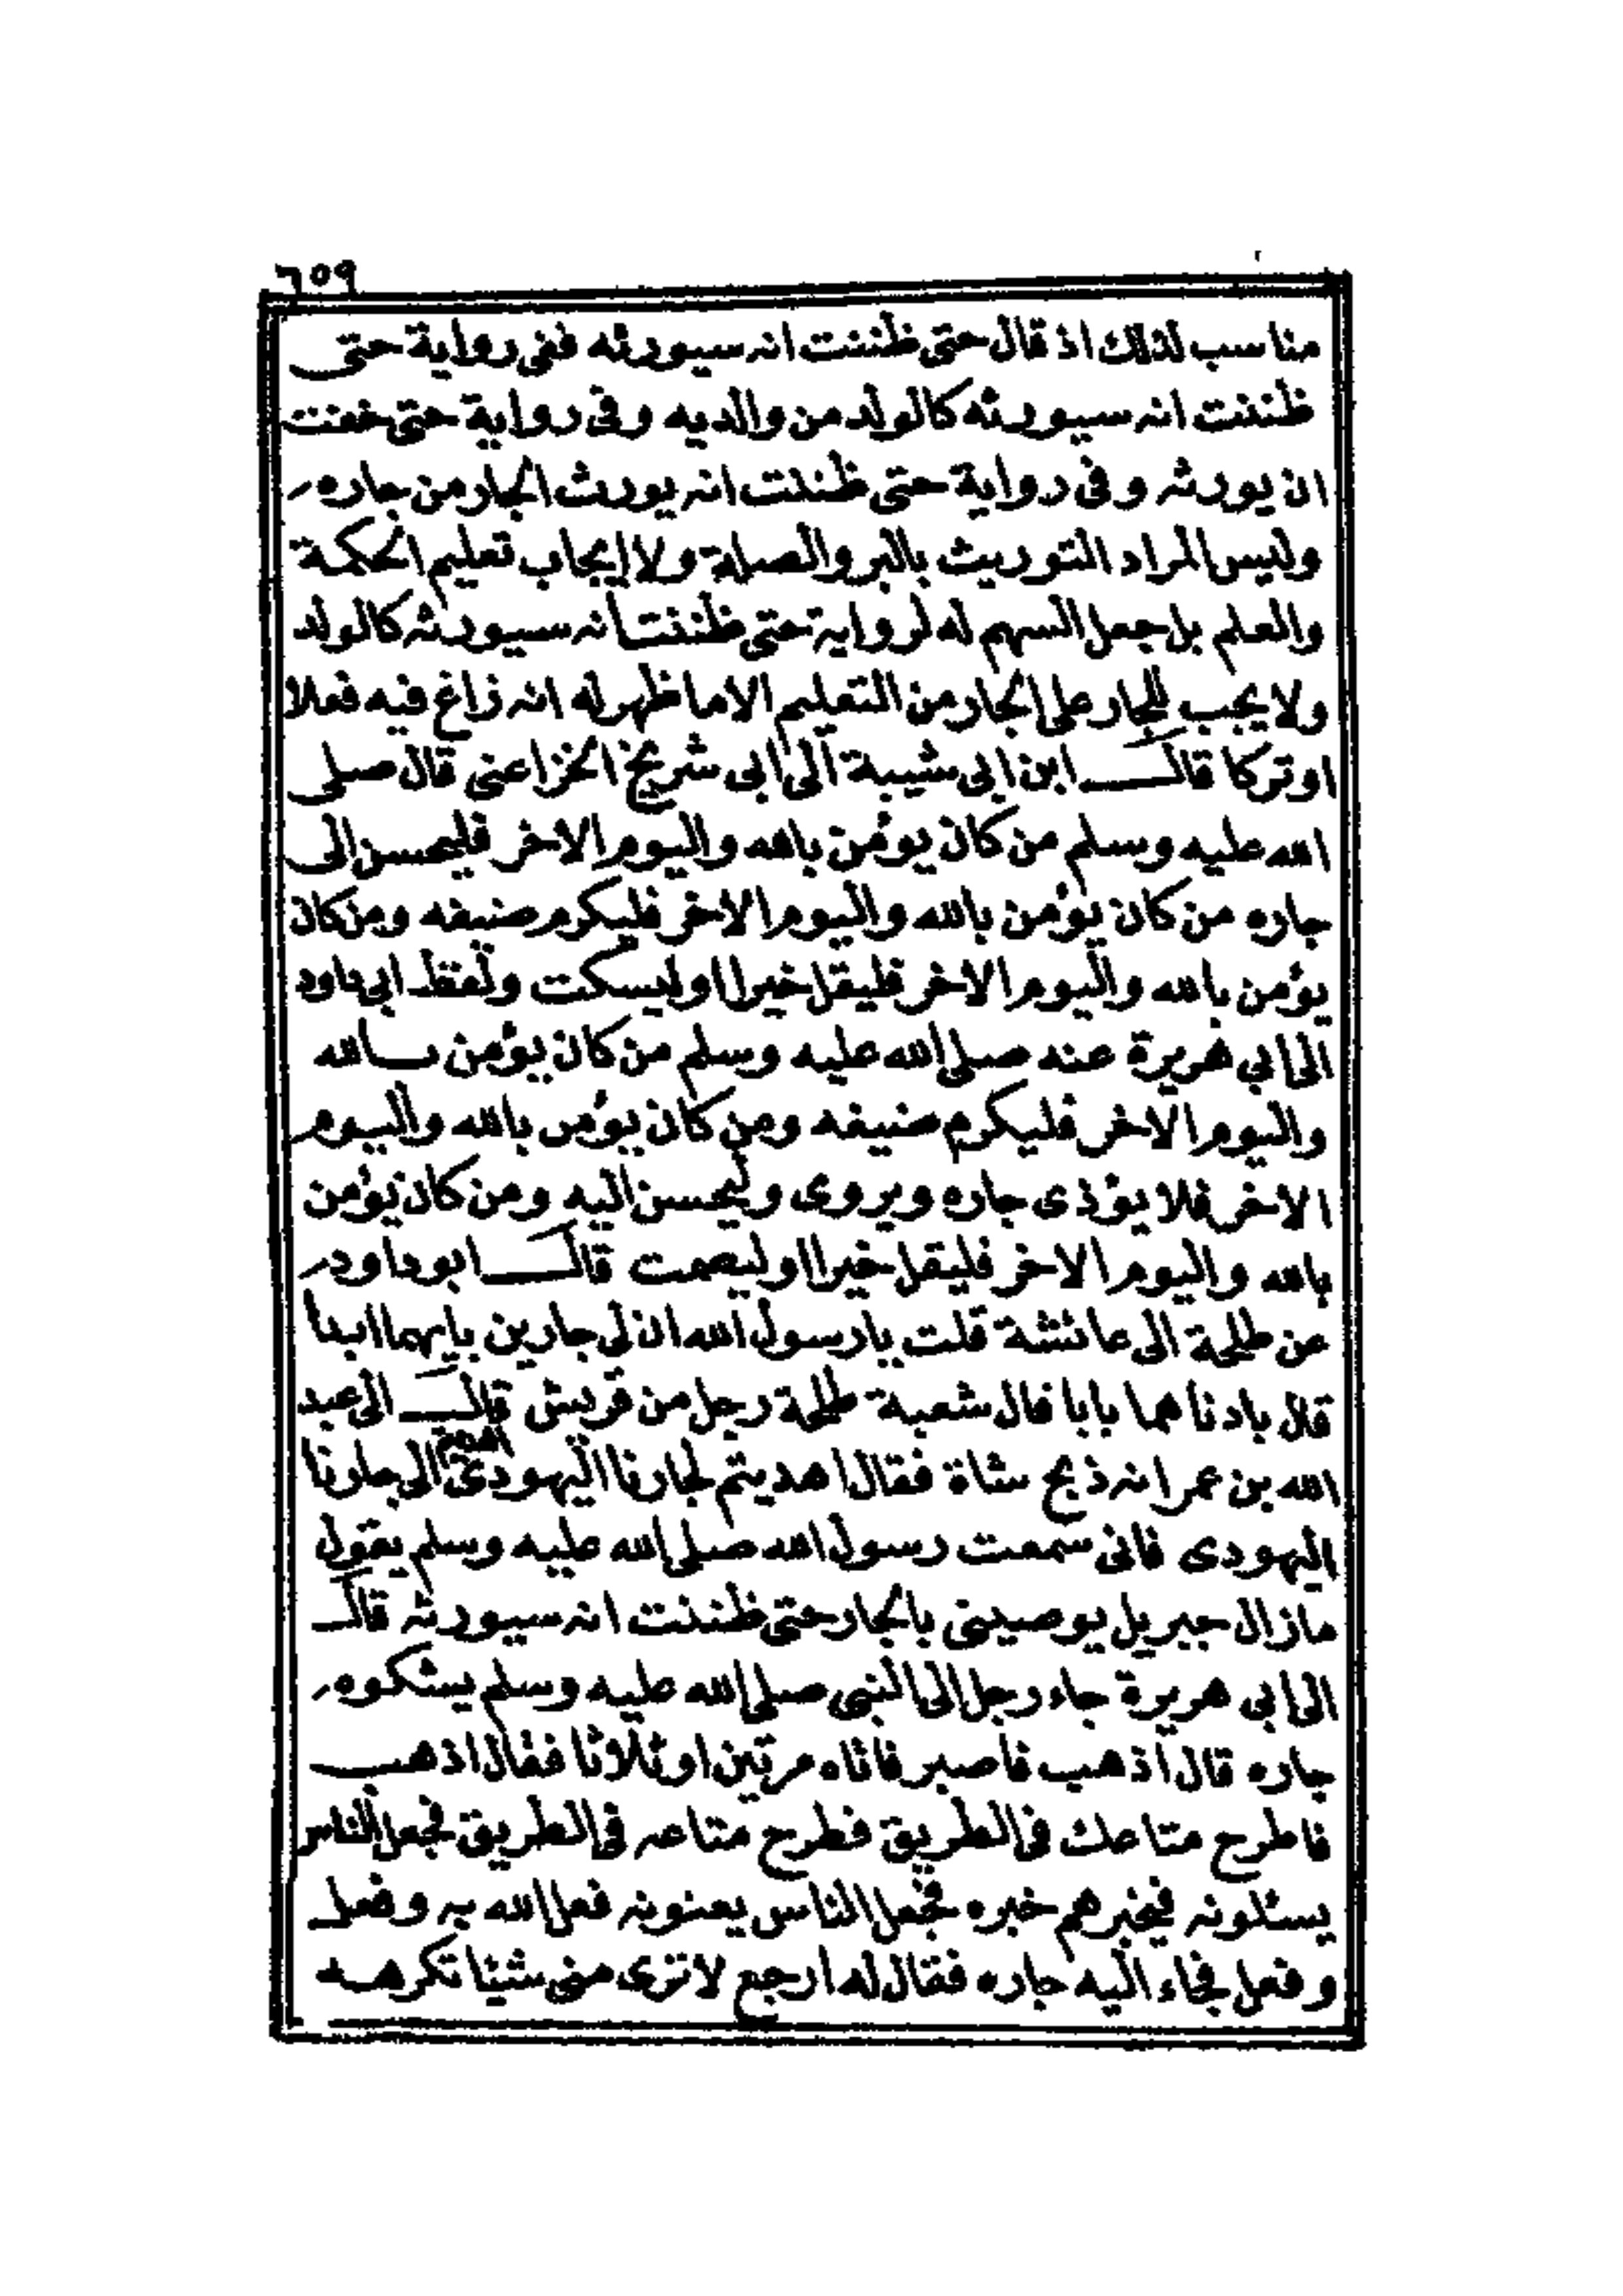 ٦٥٩
مناسب لذلك اذ قال حتى ظننت انه سيورثه ففى رواية حتى
ظننت انه سيورثه كالولد من والديه وفى رواية حتى خفت
ان يورثه وفى رواية حتى ظننت انه يورث الجار من جاره
وليس المراد التوريث بالبر والصلة ولا إيجاب تعليم الحكمة
والعلم بل جعل السهم له لرواية حتى ظننت انه سيورثه كالولد
ولا يجب للجار على الجار من التعليم الا ما ظهر له انه زاغ فيه فعلا
او تركا قال ابن ابى شيبة الى ابى شريح الخزاعى قال صلى
الله عليه وسلم من كان يؤمن بالله واليوم الاخر فليحسن الى
جاره من كان يؤمن بالله واليوم الاخر فليكرم ضيفه ومن كان
يؤمن بالله واليوم الاخر فليقل خيرا او ليسكت ولفظ ابى داود
الى ابي هريرة عنه صلى الله عليه وسلم من كان يؤمن بالله
واليوم الاخر فليكرم ضيفه ومن كان يؤمن بالله واليوم
الاخر فلا يؤذى جاره ويروى وليحسن اليه ومن كان يؤمن
بالله واليوم الاخر فليقل خيرا او ليصمت قال ابو داود
عن طلحة الى عائشة قلت يا رسول الله ان لى جارين بايهما ابدا
قال بادناهما بابا قال شعبة طلحة رجل من قريش قال الى عبد
الله بن عمر انه ذبح شاة فقال اهديتم لجارنا اليهودى اهديتم الى جارنا
اليهودى فانى سمعت رسول الله صلى الله عليه وسلم يقول
مازال جبريل يوصينى بالجار حتى ظننت انه سيورثه قال
الى ابي هريرة جاء رجل الى النبى صلى الله عليه وسلم يشكوه
جاره قال اذهب فاصبر فاتاه مرتين او ثلاثا فقال اذهب
فاطرح متاعك فى الطريق فطرح متاعه فى الطريق فجعل الناس
يسئلونه فيخبرهم خبره فجعل الناس يعنونه فعل الله به وفعل
وفعل فجاء اليه جاره فقال له ارجع لا ترى منى شيئا تكرهه